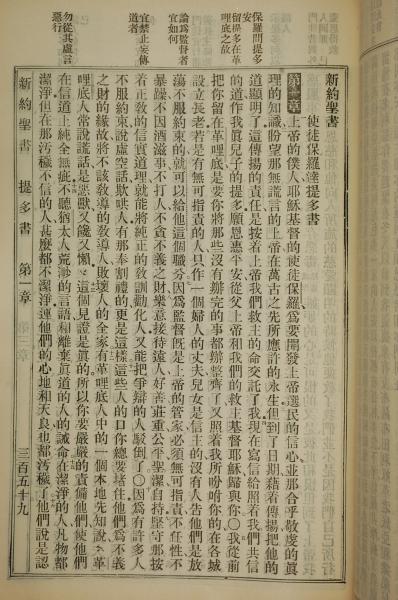 保羅問提多安
留提多在革哩底之故
論為監督者宜如何
宜禁止妄傳道者
勿從其虛言惡行
新約聖書
使徒保羅達提多書
第一章
上帝的僕人耶穌基督的使徒保羅爲要開發上帝選民的信心並那合乎敬虔的眞
理的知識盼望那無謊言的上帝在萬古之先所應許的永生但到了日期藉着傳揚把他的
道顯明了這傳揚的責任是按着上帝我們救主的命交託了我現在寫信給照着我們共信
的道作我眞兒子的提多願恩惠平安從父上帝和我們的救主基督耶穌歸與你〇我從前
把你留在革哩底是要你將那些沒有辦完的事都辦整齊了又照着我所吩咐你的在各城
設立長老若是有無可指責的人只作一個婦人的丈夫兒女是信主的沒有人告他們是放
蕩不服約束的就可以給他這個職分因爲監督旣是上帝的管家必須無可指責不任性不
暴躁不因酒滋事不打人不貪不義之財樂意接待遠人好善莊重公平聖潔自持堅守那按
着正敎的信實道理就能將純正的敎訓勸化人又能把爭辯的人駁倒了〇因爲有許多人
不服約束說虛空話欺哄人有那奉割禮的更是這樣這些人的口你總要堵住他們爲不義
之財的緣故將不該敎導的敎導人敗壞人的全家有革哩底人中的一個本地先知說革
哩底人常說謊話是惡獸又饞又懶這個見證是眞的所以你要嚴嚴的責備他們使他們
在信道上純全無疵不聽猶太人荒渺的言語和離棄眞道的人的誡命在潔淨的人凡物都
潔淨但在那汚穢不信的人甚麼都不潔淨連他們的心地和天良也都汚穢了他們說是認
新約聖書 提多書 第一章 三百五十九